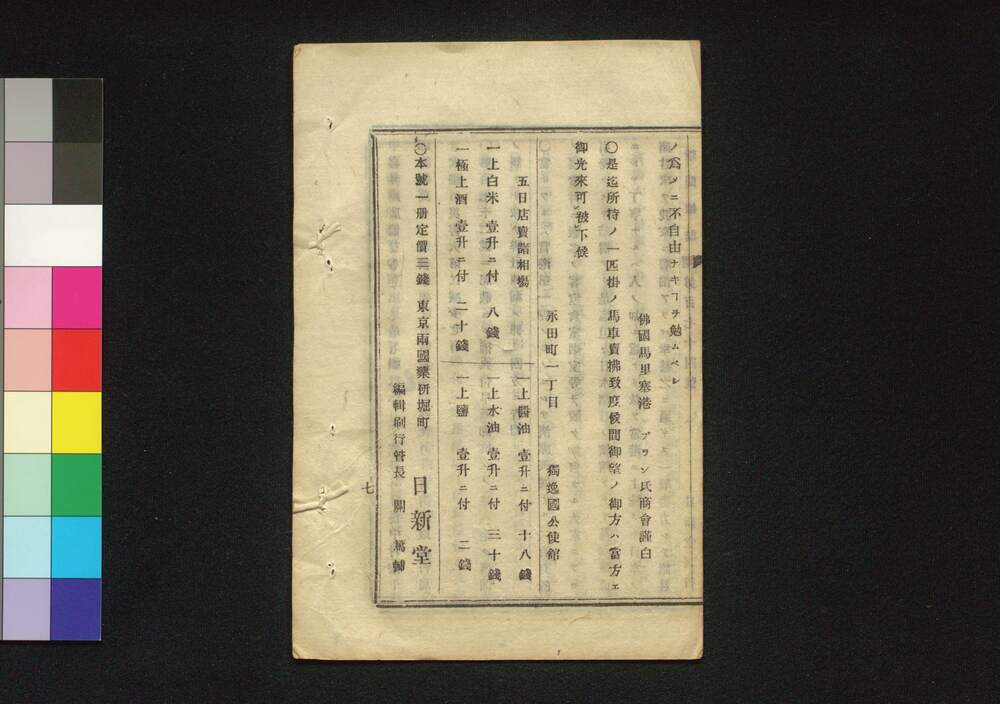 ノ爲メニ不自由ナキヿヲ勉ムベシ
佛國馬里塞港 ブワン氏商會謹白
〇是迄所持ノ一匹掛ノ馬車賣拂致度候間御望ノ御方ハ當方ェ
御光來可被下候
永田町一丁目 獨逸國公使館
五日店賣諸相場
一上醬油 壹升ニ付 十八錢
一上白米 壹升ニ付 八錢
一上水油 壹升ニ付 三十錢
一極上酒 壹升ニ付 二十錢
一上鹽 壹升ニ付 二錢
〇本號一册定價三錢 東京兩國藥研堀町 日新堂
編輯刷行管長 關 篤輔
七